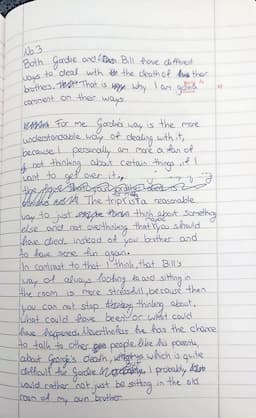 No 3
Both Gordie and Bill have different
ways to deal with the death of their
brothers. That is why I am going to
comment on their ways.
For me Gordie's way is the more
understandable way of dealing with it,
because I personally am more a fan of
not thinking about certain things, if I
want to get over it.
The trip is a reasonable
way to just think about something
else and not overthinking that you should
have died instead of you brother and
to have some fun again.
In contrast to that I think, that Bill's
way of always looking to and sitting in
the room is more stressfull, because then
you can not stop thinking about,
what could have been or what could
have happened. Nevertheless he has the chance
to talk to other people, like his parents,
about George's death, which is quite
difficult for Gordie. I probably
would rather not just be sitting in the old
room of my own brother